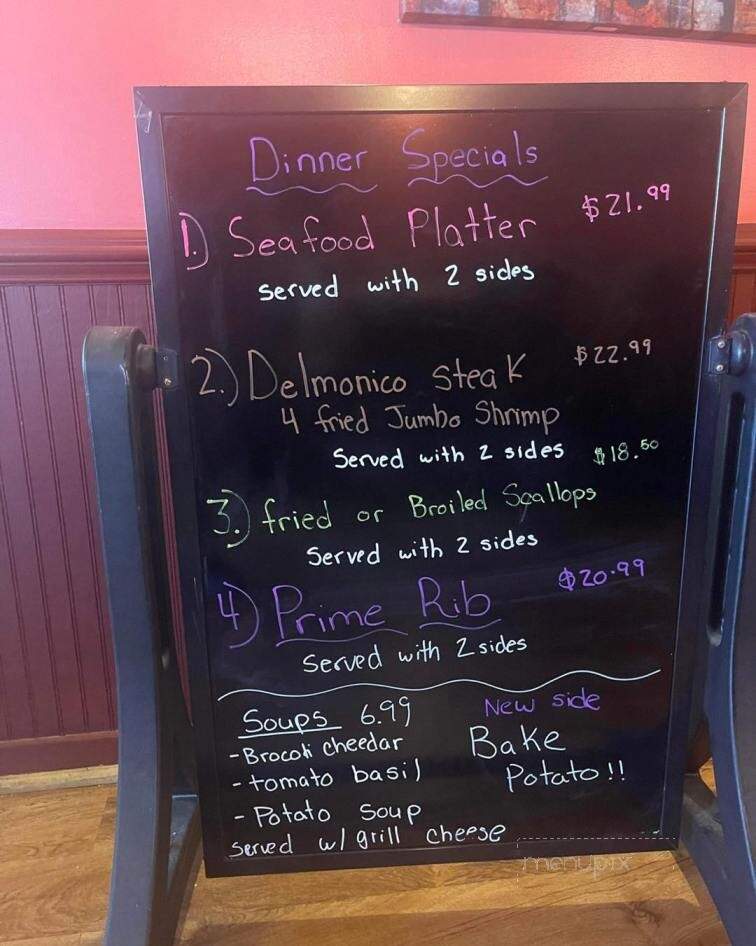 Dinner Specials
1.) Seafood Platter $21.99
served with 2 sides
2.) Delmonico steak $22.99
4 fried Jumbo Shrimp
Served with 2 sides $18.50
3.) fried or Broiled Scallops
Served with 2 sides
4) Prime Rib $20.99
Served with 2 sides
Soups 6.99
- Brocoli cheedar
- tomato basil
- Potato Soup
Served w/ grill cheese
New side
Bake
Potato!!
menupix